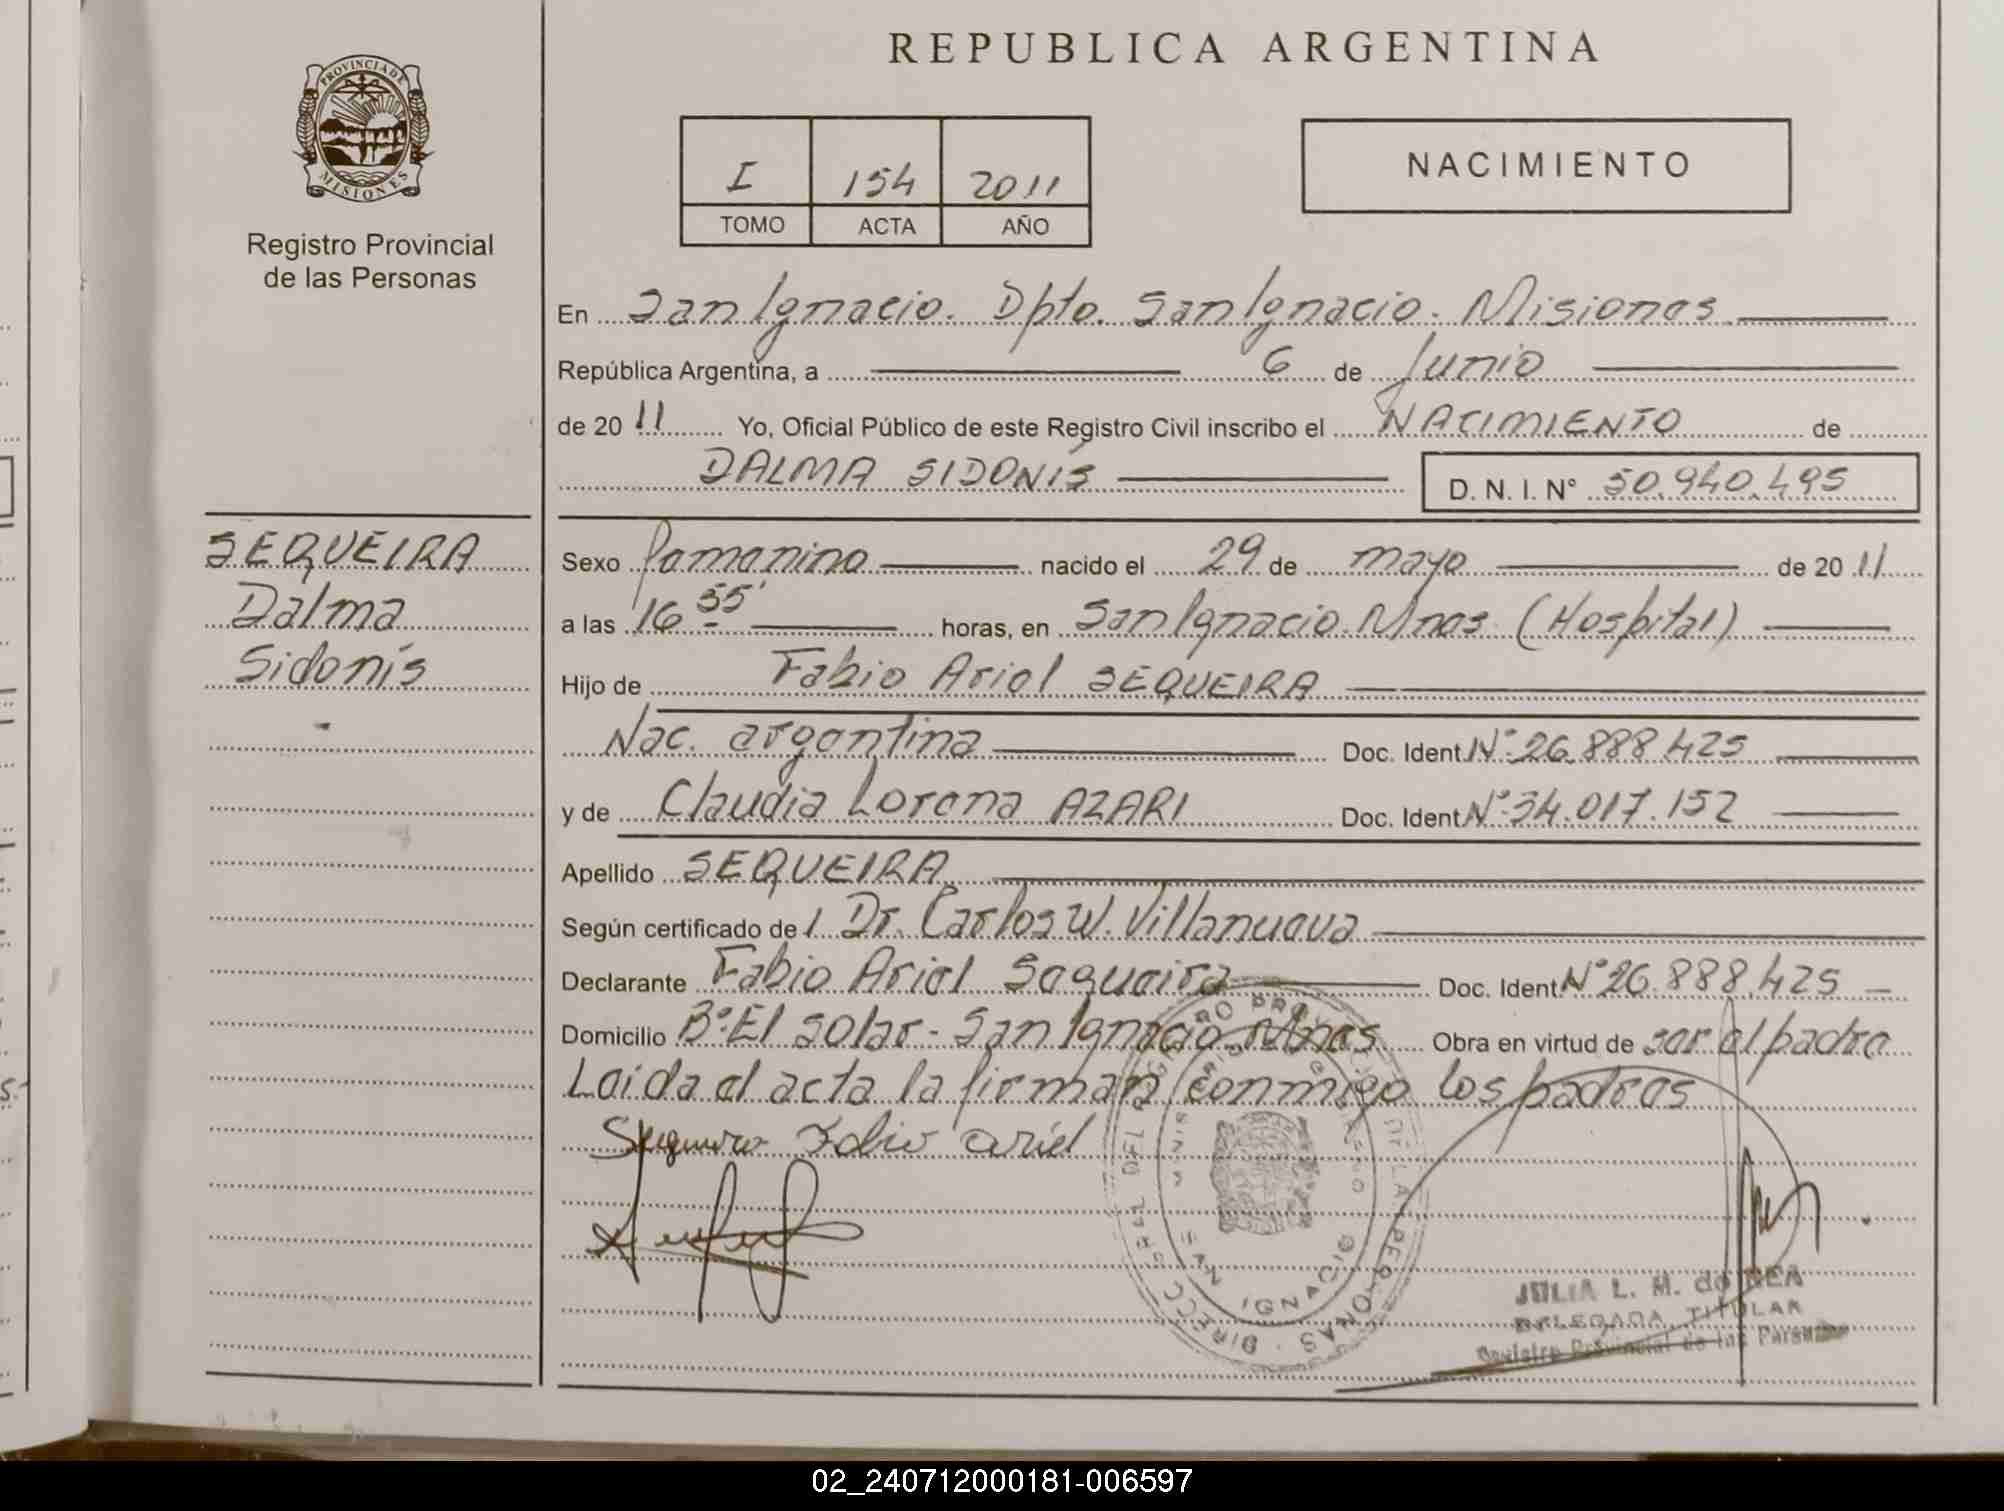 REPUBLICA ARGENTINA
PROVINCIA DE
MISIONES
Registro Provincial
de las Personas
I 154 2011
TOMO ACTA AÑO
NACIMIENTO
En San Ignacio. Dpto. San Ignacio. Misiones
República Argentina, a 6 de Junio
de 2011 Yo, Oficial Público de este Registro Civil inscribo el NACIMIENTO de
DALMA SIDONIS D. N. I. N° 50.940.495
SEQUEIRA
Dalma
Sidonis
Sexo femenino nacido el 29 de mayo de 2011
a las 16 55' horas, en San Ignacio. Mnes (Hospital)
Hijo de Fabio Ariel SEQUEIRA
Nac. argentina Doc. Ident. N° 26.888.425
y de Claudia Lorena AZARI Doc. Ident. N° 34.017.152
Apellido SEQUEIRA
Según certificado de l Dr. Carlos W. Villanueva
Declarante Fabio Ariel Sequeira Doc. Ident. N° 26.888.425
Domicilio B° El solar - San Ignacio Mnes Obra en virtud de ser el padre
Leida el acta la firman conmigo los padres
Fabio Ariel
DIRECC GRAL DEL REGISTRO PROVINCIAL DE LAS PERSONAS
SAN IGNACIO
JULIA L. M. de
DELEGADA TITULAR
Registro Provincial de las Personas
02_240712000181-006597